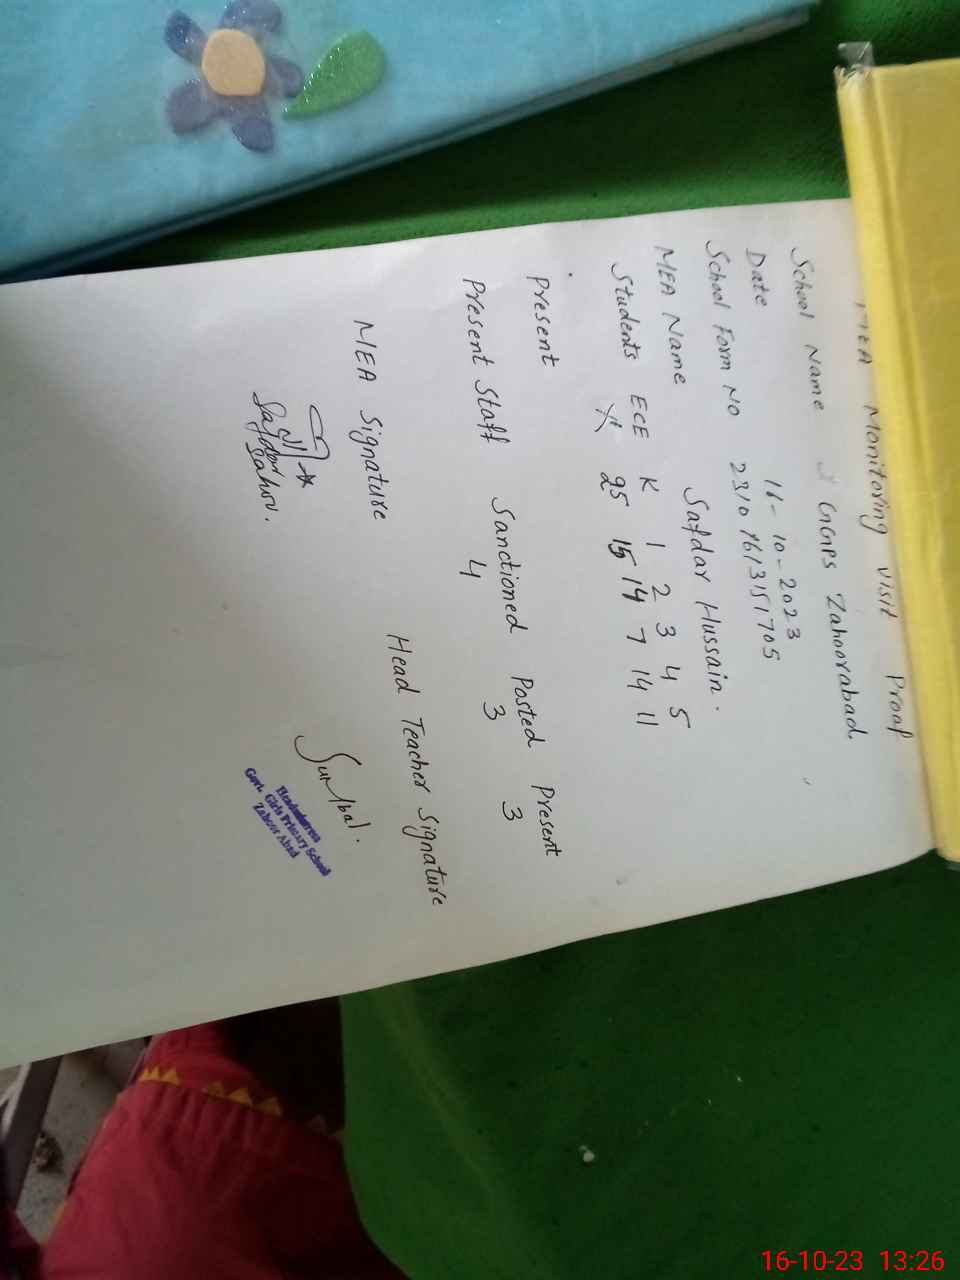 MEA Monitoring Visit Proof
School Name GGPS Zahoorabad
Date 16-10-2023
School Form No 2310 1613151705
MEA Name Safdar Hussain.
Students ECE K 1 2 3 4 5
25 15 14 7 14 11
Present
Sanctioned Posted Present
Present Staff 4 3 3
MEA Signature Head Teacher Signature
Safdar
Sahav.
Sumbal.
Headmistress
Govt. Girls Primary School
Zahoor Abad
16-10-23 13:26